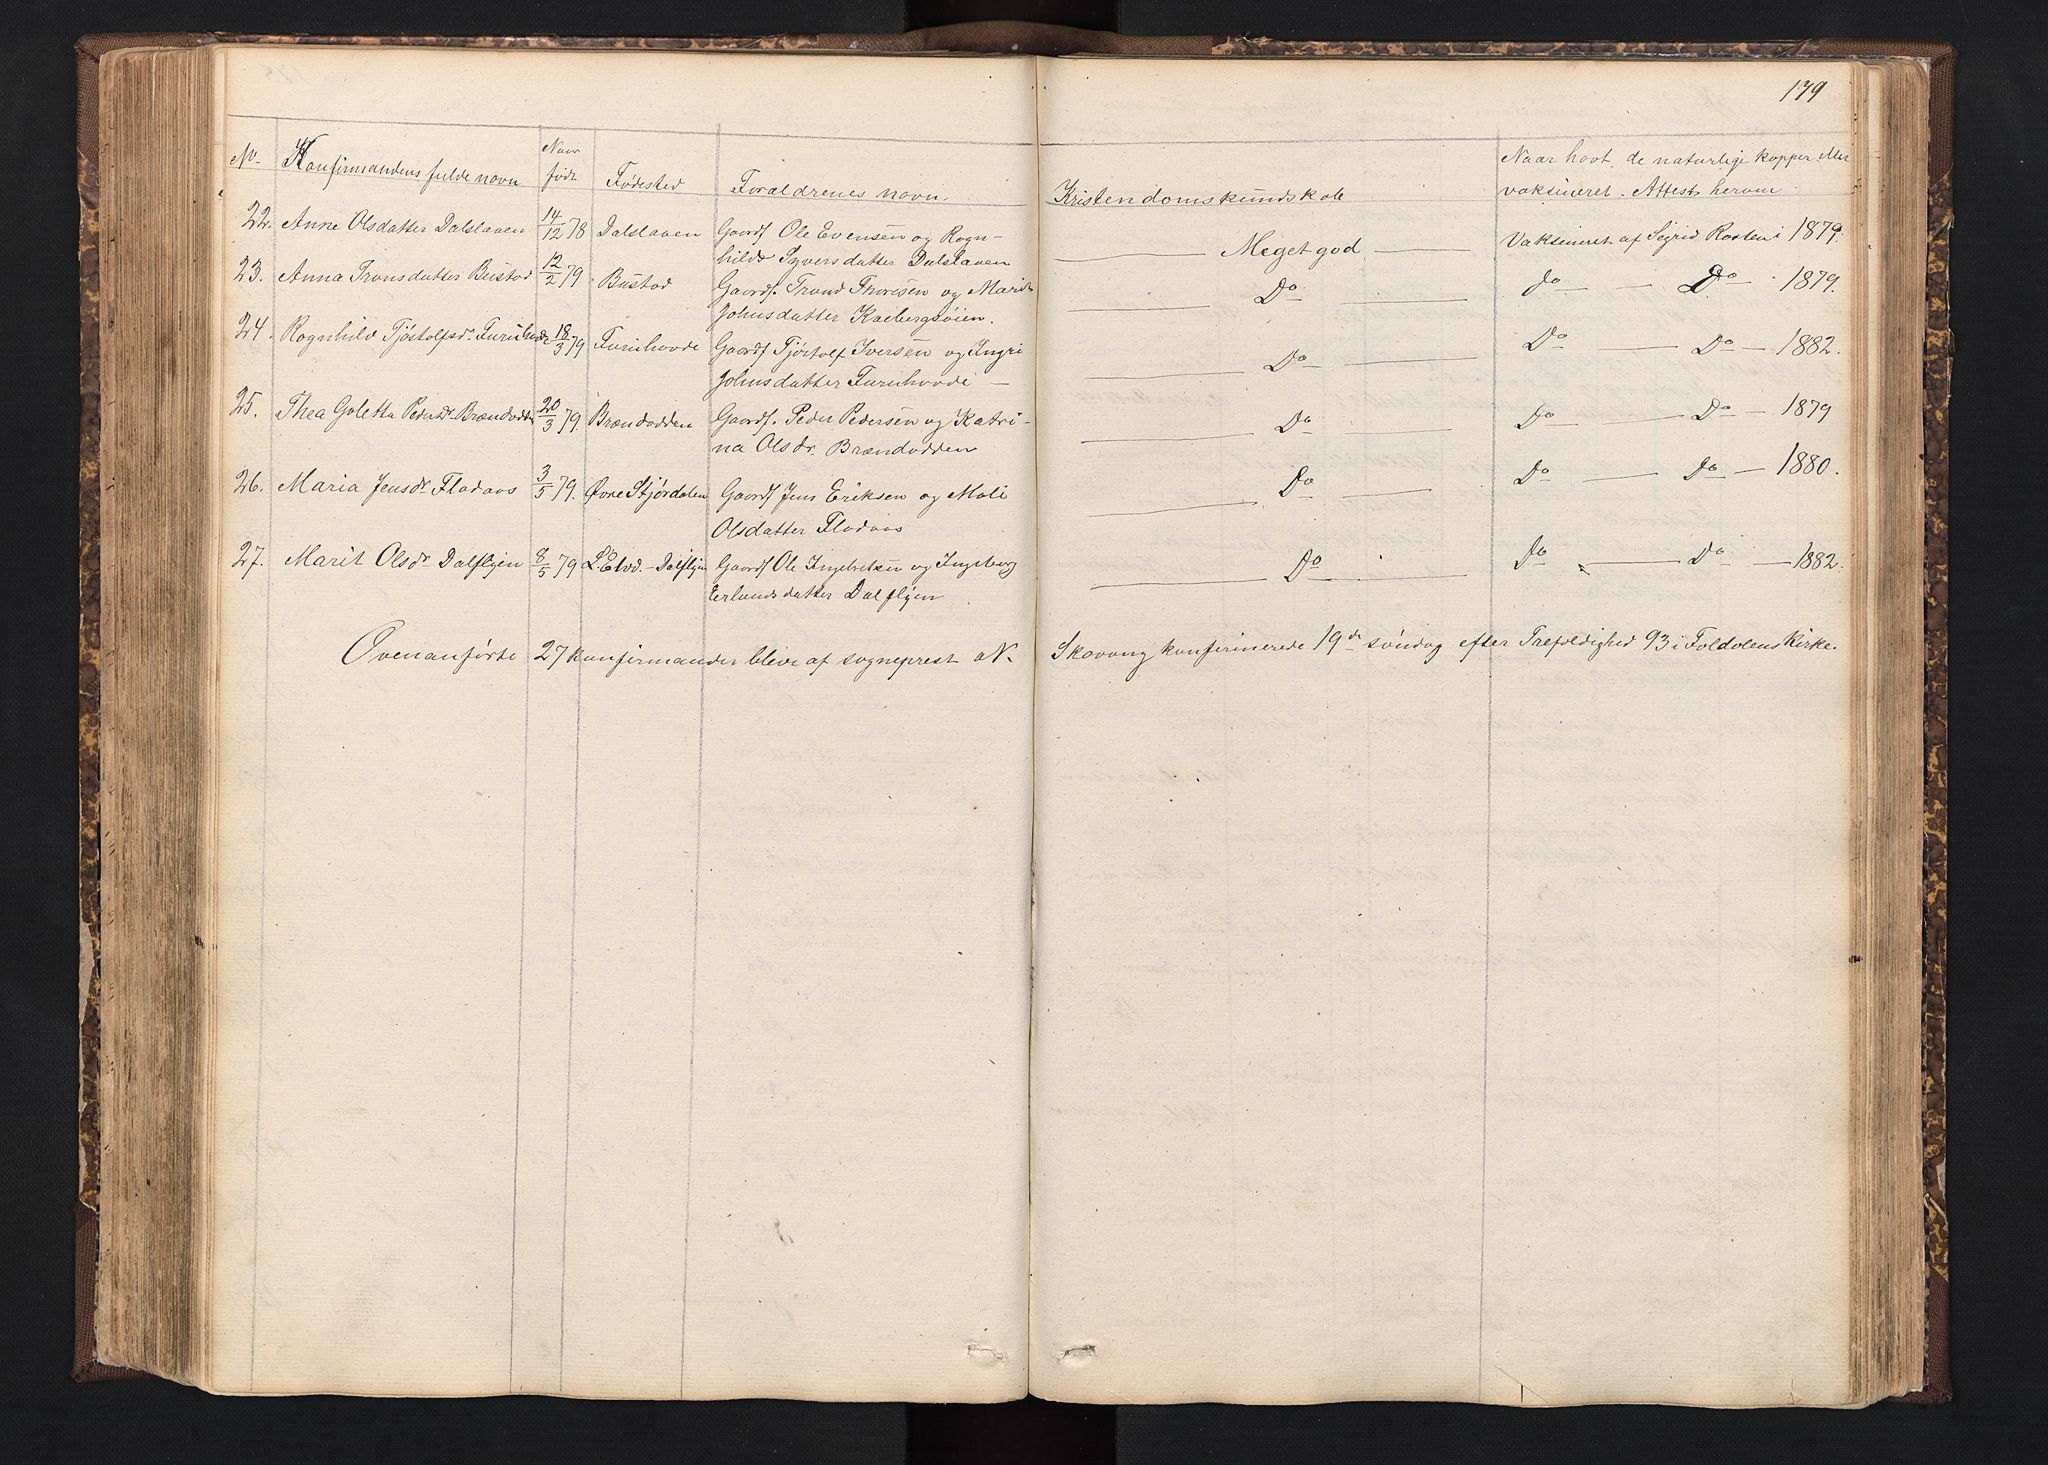 179
No. Konfirmandens fulde navn Naar født Fødested Forældrenes navn. Kristendomskundskab Naar havt de naturlige kopper eller
vaksineret. Attest herom
22. Anne Olsdatter Dalslaaen 14/12 78 Dalslaaen Gaardf Ole Evensen og Ragn- Meget god Vaksineret af Sigrid Rasten i 1879.
hilde Iversdatter Dalslaaen
23. Anna Tronsdatter Bustad 12/2 79 Bustad Gaardf. Trond Thoresen og Marit Do Do Do 1879.
Johnsdatter Kaebergsøien.
24. Ragnhild Tjøstolfsdr. Furuhovde 18/3 79 Furuhovde Gaardf Tjøstolf Iversen og Ingri Do Do Do 1882.
Johnsdatter Furuhovde
25. Thea Goletta Pedersdr. Brændodden 20/3 79. Brændodden Gaardf. Peder Pedersen og Katri- Do Do Do 1879
na Olsdr. Brændodden
26. Maria Jensdr. Fladaas 3/5 79. Øvre Stjørdalen Gaardf Jens Eriksen og Mali Do Do Do 1880.
Olsdatter Fladaas
27. Marit Olsdr Dalflyen 8/5 79 L. Elvd. - Dalflyen Gaardf Ole Ingebretsen og Ingeborg Do Do Do 1882.
Erlandsdatter Dalflyen
Ovenanførte 27 konfirmander bleve af sogneprest N. Skavang konfirmerede 19de søndag efter Trefoldighed 93 i Foldalens Kirke.